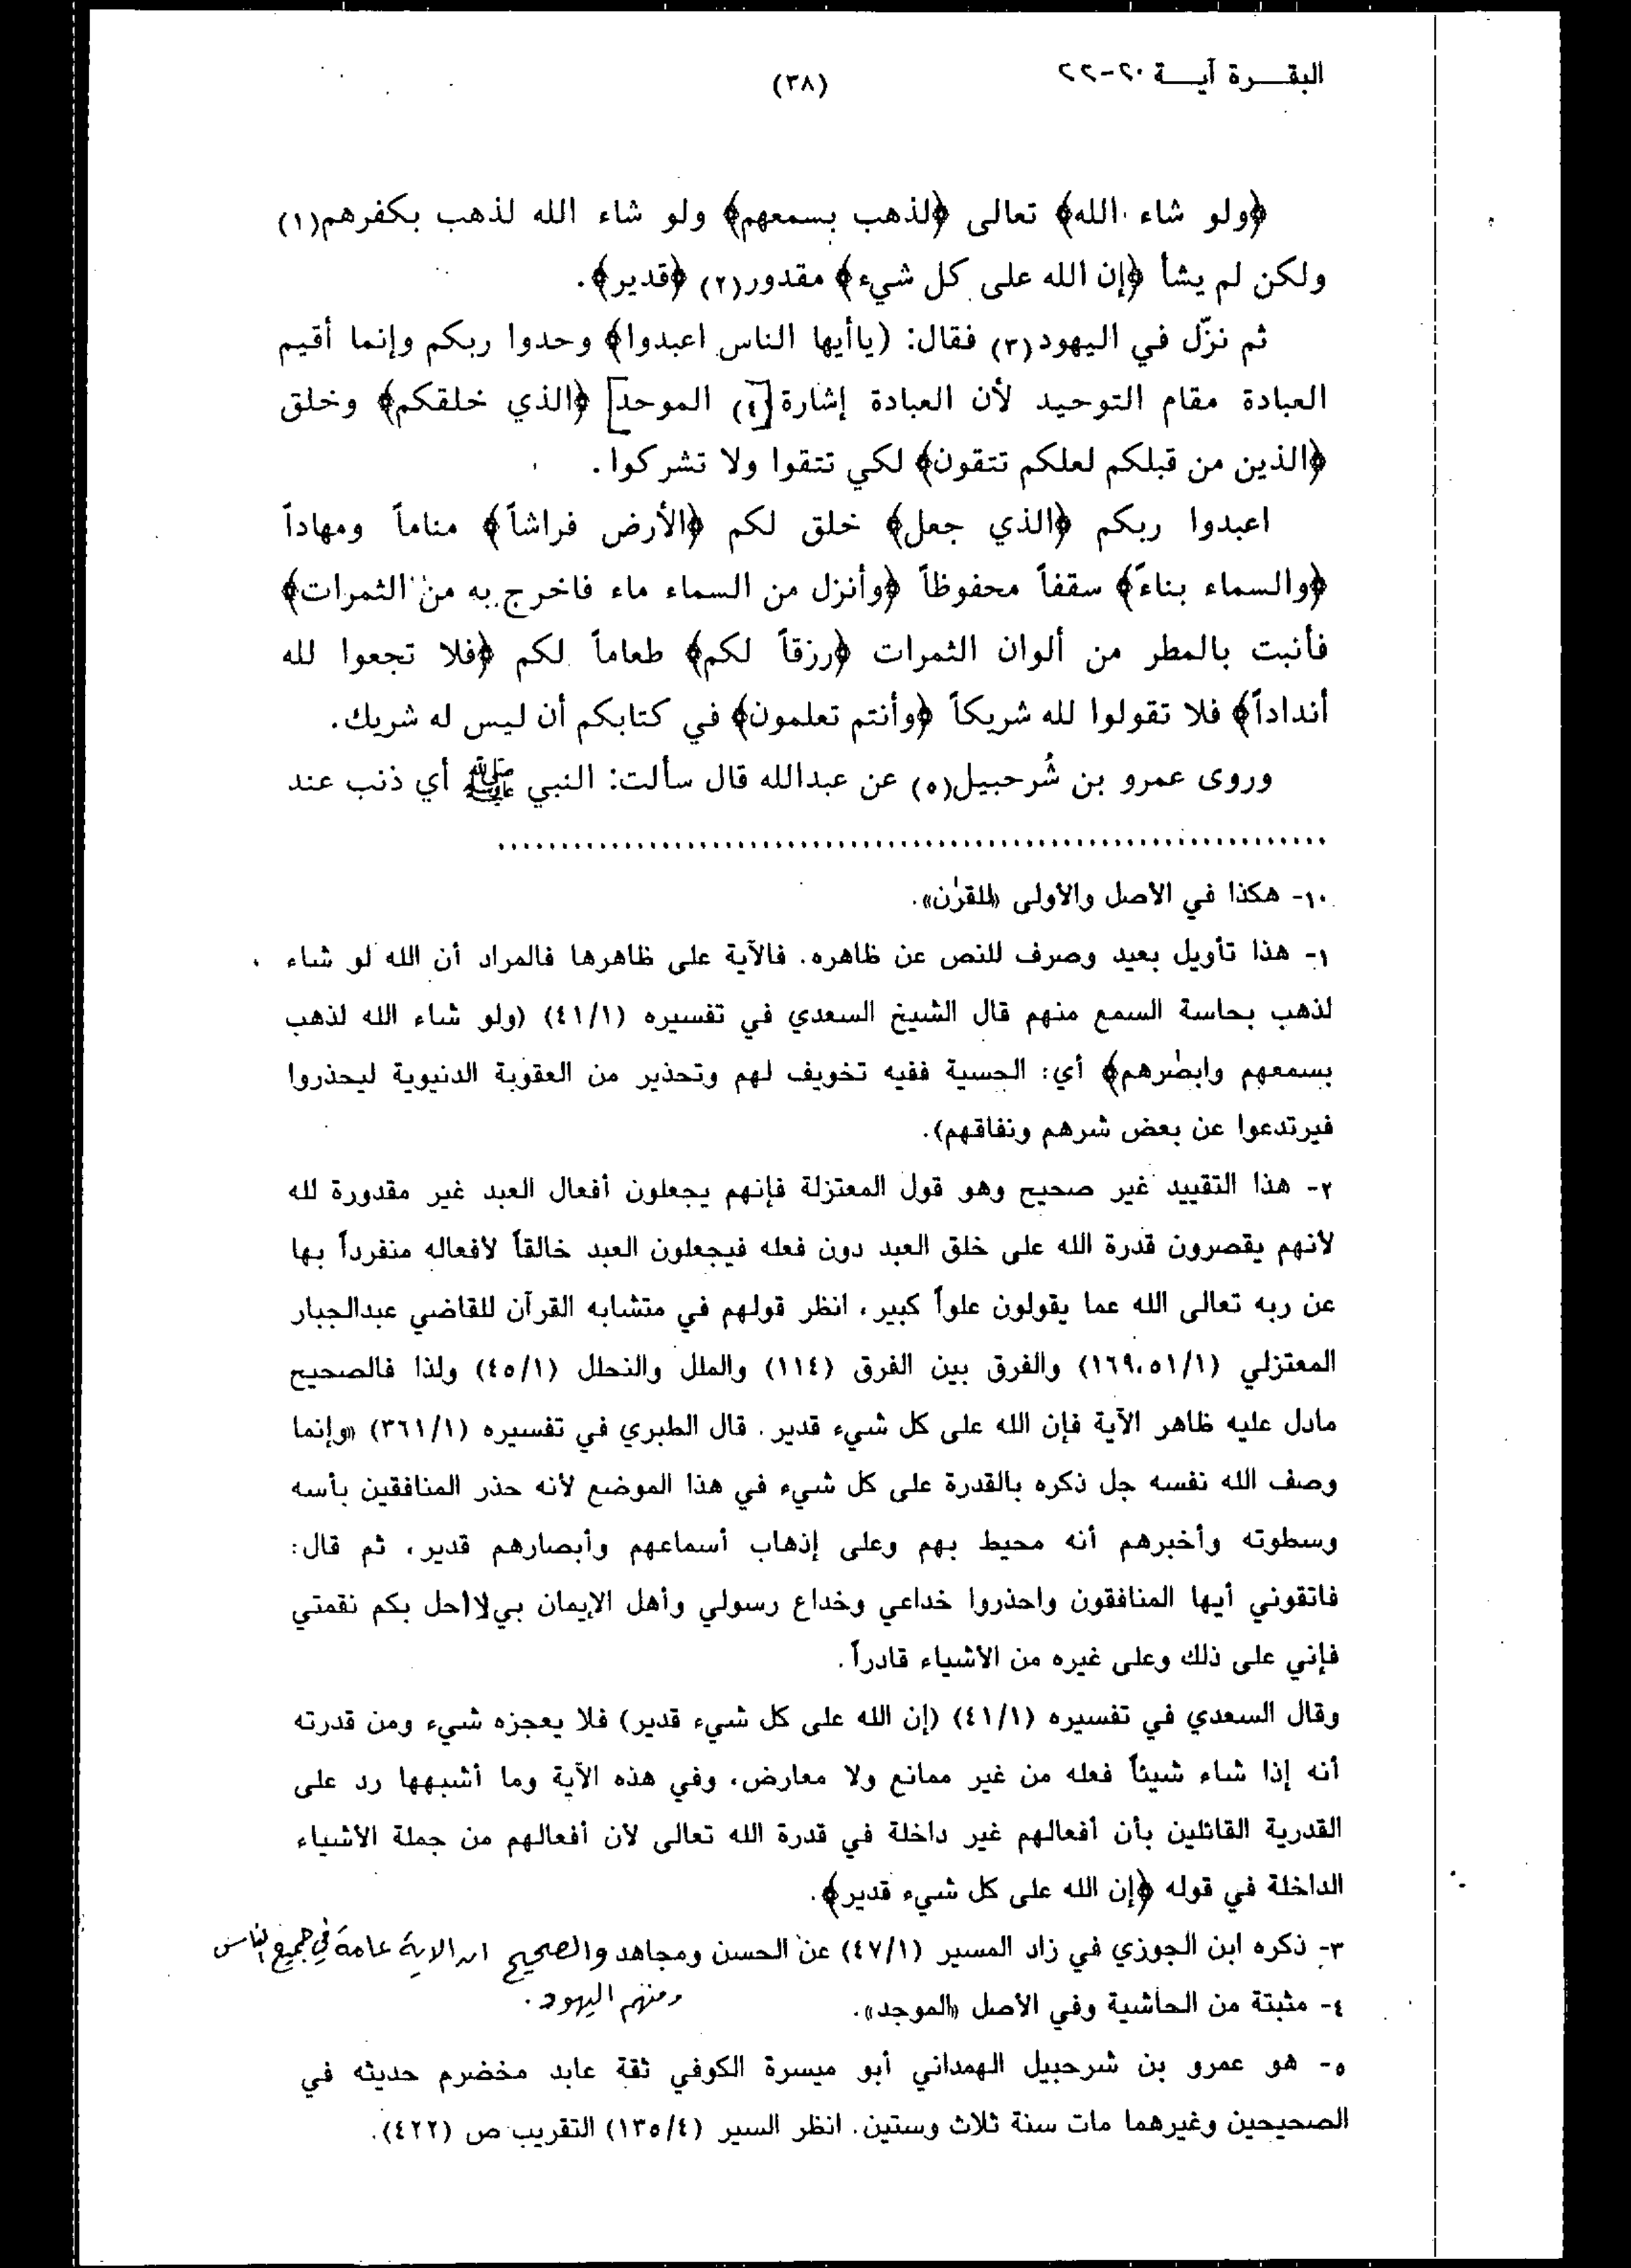 البقـــرة آيـــة ٢٠-٢٢
(٣٨)
﴿ولو شاء الله﴾ تعالى ﴿لذهب بسمعهم﴾ ولو شاء الله لذهب بكفرهم(١)
ولكن لم يشأ ﴿إن الله على كل شيء﴾ مقدور(٢) ﴿قدير﴾.
ثم نزّل في اليهود(٣) فقال: (ياأيها الناس اعبدوا﴾ وحدوا ربكم وإنما أقيم
العبادة مقام التوحيد لأن العبادة إشارة[(٤) الموحد] ﴿الذي خلقكم﴾ وخلق
﴿الذين من قبلكم لعلكم تتقون﴾ لكي تتقوا ولا تشركوا.
اعبدوا ربكم ﴿الذي جعل﴾ خلق لكم ﴿الأرض فراشاً﴾ مناماً ومهاداً
﴿والسماء بناءً﴾ سقفاً محفوظاً ﴿وأنزل من السماء ماء فاخرج به من الثمرات﴾
فأنبت بالمطر من ألوان الثمرات ﴿رزقاً لكم﴾ طعاماً لكم ﴿فلا تجعوا لله
أنداداً﴾ فلا تقولوا لله شريكاً ﴿وأنتم تعلمون﴾ في كتابكم أن ليس له شريك.
وروى عمرو بن شُرحبيل(٥) عن عبدالله قال سألت: النبي ﷺ أي ذنب عند
١٠- هكذا في الأصل والأولى «للقرٰن».
١- هذا تأويل بعيد وصرف للنص عن ظاهره. فالآية على ظاهرها فالمراد أن الله لو شاء
لذهب بحاسة السمع منهم قال الشيخ السعدي في تفسيره (٤١/١) (ولو شاء الله لذهب
بسمعهم وابصٰرهم﴾ أي: الحسية ففيه تخويف لهم وتحذير من العقوبة الدنيوية ليحذروا
فيرتدعوا عن بعض شرهم ونفاقهم).
٢- هذا التقييد غير صحيح وهو قول المعتزلة فإنهم يجعلون أفعال العبد غير مقدورة لله
لأنهم يقصرون قدرة الله على خلق العبد دون فعله فيجعلون العبد خالقاً لأفعاله منفرداً بها
عن ربه تعالى الله عما يقولون علواً كبير، انظر قولهم في متشابه القرآن للقاضي عبدالجبار
المعتزلي (١٦٩،٥١/١) والفرق بين الفرق (١١٤) والملل والنحلل (٤٥/١) ولذا فالصحيح
مادل عليه ظاهر الآية فإن الله على كل شيء قدير. قال الطبري في تفسيره (٣٦١/١) «وإنما
وصف الله نفسه جل ذكره بالقدرة على كل شيء في هذا الموضع لأنه حذر المنافقين بأسه
وسطوته وأخبرهم أنه محيط بهم وعلى إذهاب أسماعهم وأبصارهم قدير، ثم قال:
فاتقوني أيها المنافقون واحذروا خداعي وخداع رسولي وأهل الإيمان بي لا أحل بكم نقمتي
فإني على ذلك وعلى غيره من الأشياء قادراً.
وقال السعدي في تفسيره (٤١/١) (إن الله على كل شيء قدير) فلا يعجزه شيء ومن قدرته
أنه إذا شاء شيئاً فعله من غير ممانع ولا معارض، وفي هذه الآية وما أشبهها رد على
القدرية القائلين بأن أفعالهم غير داخلة في قدرة الله تعالى لأن أفعالهم من جملة الأشياء
الداخلة في قوله ﴿إن الله على كل شيء قدير﴾.
٣- ذكره ابن الجوزي في زاد المسير (٤٧/١) عن الحسن ومجاهد والصحيح ان الاية عامة في جميع الناس
ومنهم اليهود.
٤- مثبتة من الحاشية وفي الأصل «الموجد».
٥- هو عمرو بن شرحبيل الهمداني أبو ميسرة الكوفي ثقة عابد مخضرم حديثه في
الصحيحين وغيرهما مات سنة ثلاث وستين. انظر السير (١٣٥/٤) التقريب ص (٤٢٢).